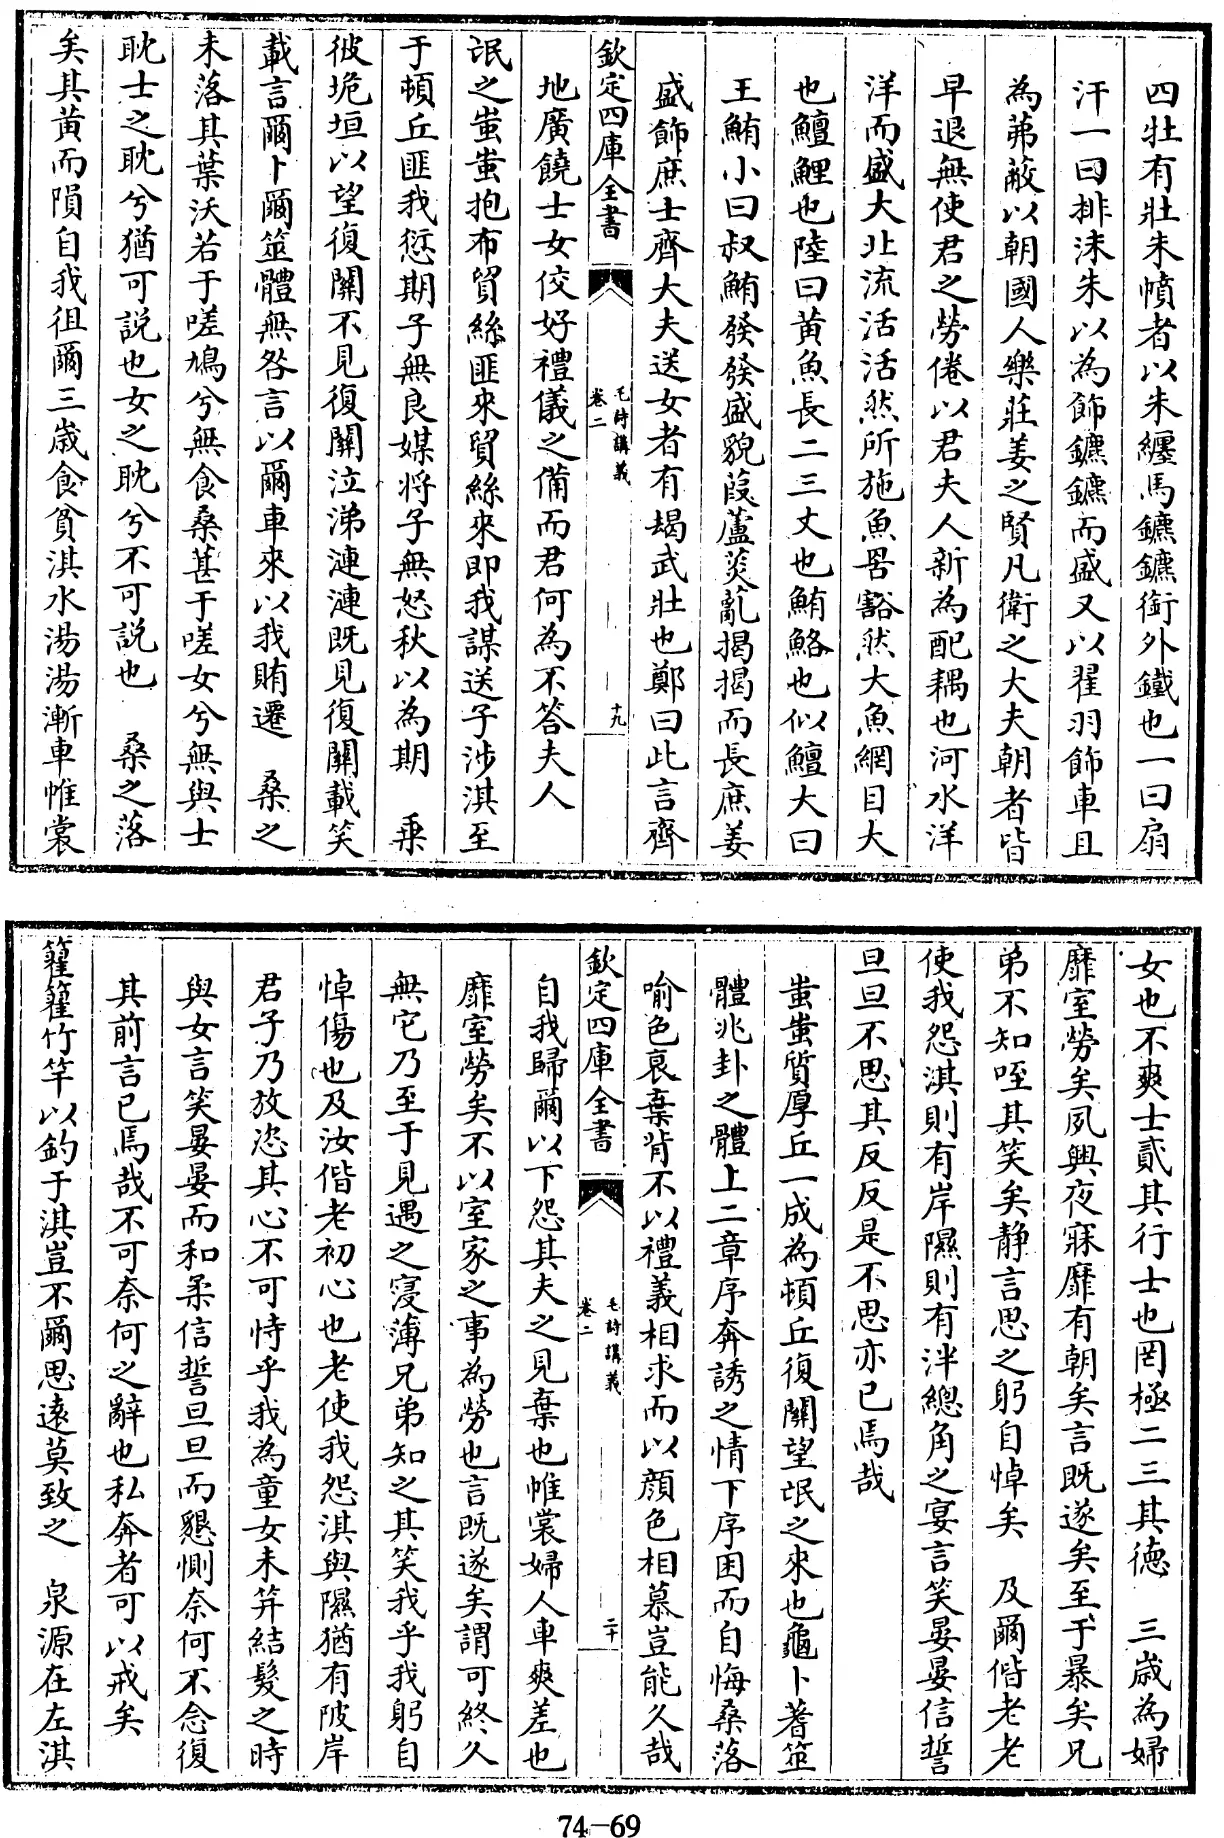 四壯有壯朱幩者以朱纏馬鑣鑣銜外鐵也一曰扇
汗一曰排沫朱以為飾鑣鑣而盛又以翟羽飾車且
為茀蔽以朝國人樂莊姜之賢凡衛之大夫朝者皆
早退無使君之勞倦以君夫人新為配耦也河水洋
洋而盛大北流活活然所施魚罟豁然大魚網目大
也鱣鯉也陸曰黃魚長二三丈也鮪鮥也似鱣大曰
王鮪小曰叔鮪發發盛貌葭蘆菼薍揭揭而長庶姜
盛飾庶士齊大夫送女者有朅武壯也鄭曰此言齊
欽定四庫全書
毛詩講義
卷二
十九
地廣饒士女佼好禮儀之備而君何為不答夫人
氓之蚩蚩抱布貿絲匪來貿絲來即我謀送子涉淇至
于頓丘匪我愆期子無良媒將子無怒秋以為期　乘
彼垝垣以望復關不見復關泣涕漣漣既見復關載笑
載言爾卜爾筮體無咎言以爾車來以我賄遷　桑之
未落其葉沃若于嗟鳩兮無食桑葚于嗟女兮無與士
耽士之耽兮猶可說也女之耽兮不可說也　桑之落
矣其黃而隕自我徂爾三歲食貧淇水湯湯漸車帷裳
女也不爽士貳其行士也罔極二三其德　三歲為婦
靡室勞矣夙興夜寐靡有朝矣言既遂矣至于暴矣兄
弟不知咥其笑矣靜言思之躬自悼矣　及爾偕老老
使我怨淇則有岸隰則有泮總角之宴言笑晏晏信誓
旦旦不思其反反是不思亦已焉哉
蚩蚩質厚丘一成為頓丘復關望氓之來也龜卜蓍筮
體兆卦之體上二章序奔誘之情下序困而自悔桑落
喻色衰棄背不以禮義相求而以顏色相慕豈能久哉
欽定四庫全書
毛詩講義
卷二
二十
自我歸爾以下怨其夫之見棄也帷裳婦人車爽差也
靡室勞矣不以室家之事為勞也言既遂矣謂可終久
無它乃至于見遇之寖薄兄弟知之其笑我乎我躬自
悼傷也及汝偕老初心也老使我怨淇與隰猶有陂岸
君子乃放恣其心不可恃乎我為童女未笄結髮之時
與女言笑晏晏而和柔信誓旦旦而懇惻奈何不念復
其前言已焉哉不可奈何之辭也私奔者可以戒矣
籊籊竹竿以釣于淇豈不爾思遠莫致之　泉源在左淇
74-69